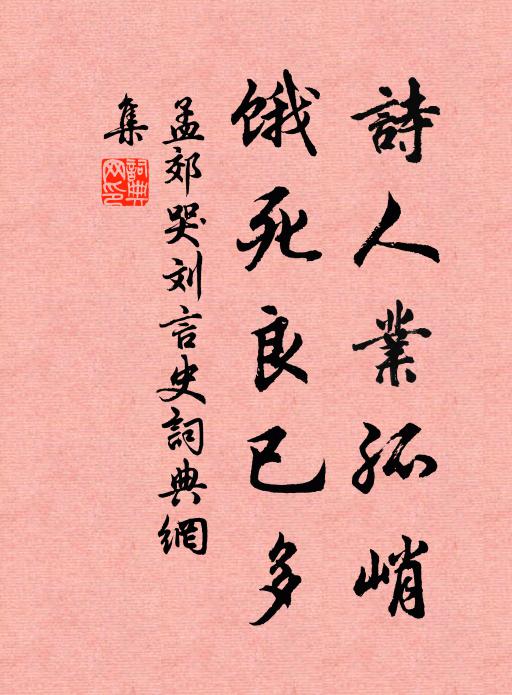 詩人業孤峭
餓死良已多
孟郊哭刘言史詞典網
集
詞典网印